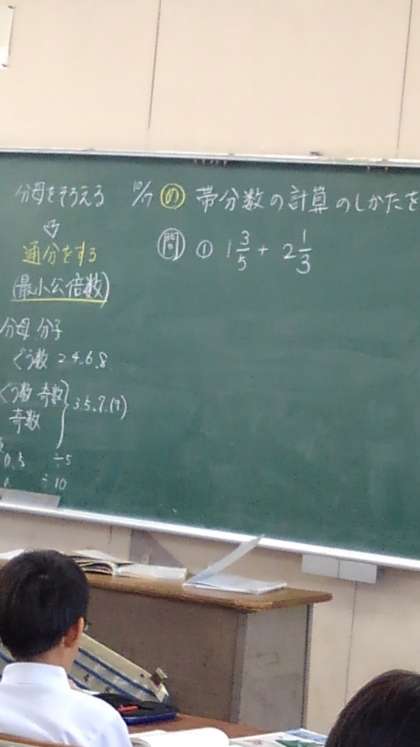 分母をそろえる
⇩
通分をする
(最小公倍数)
分母 分子
ぐう数 2.4.6.8
ぐう数 奇数
奇数
3.5.7.(9)
0.5 ÷5
÷10
10/17 め 帯分数の計算のしかたを
問 ① 1 3/5 + 2 1/3